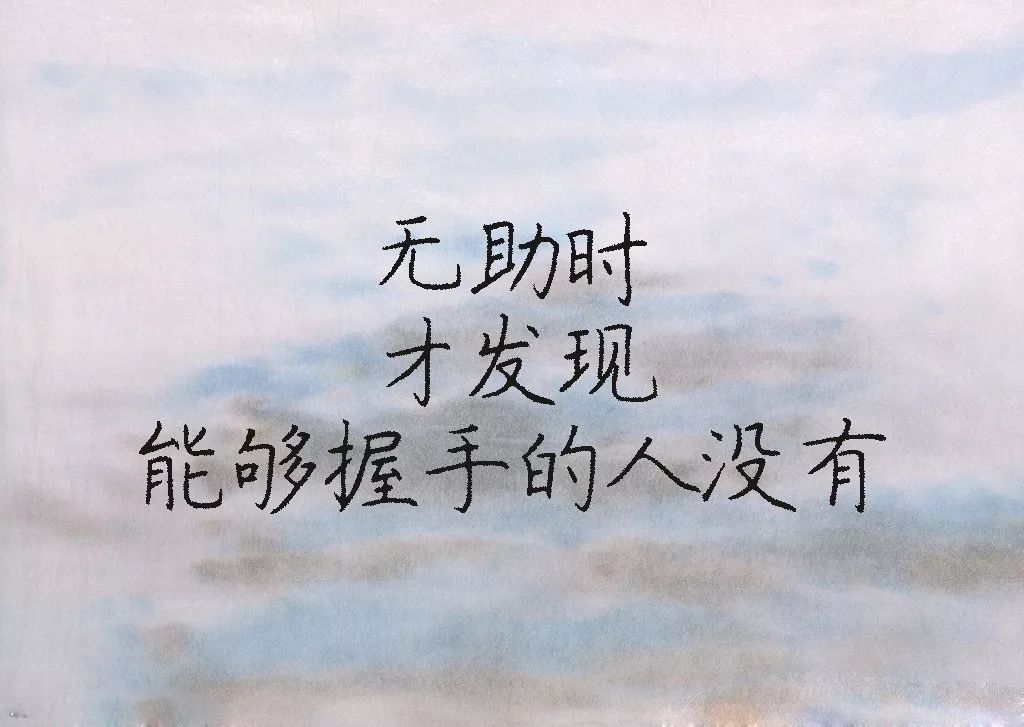 无助时
才发现
能够握手的人没有